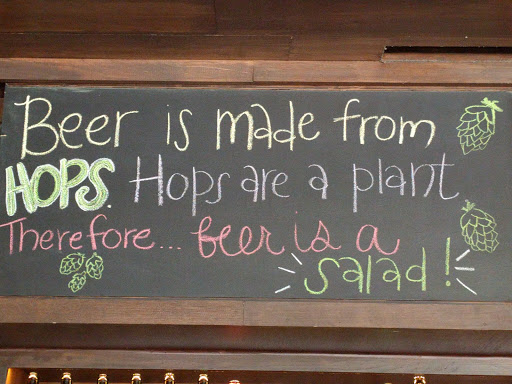 Beer is made from
HOPS. Hops are a plant
Therefore... beer is a
salad!